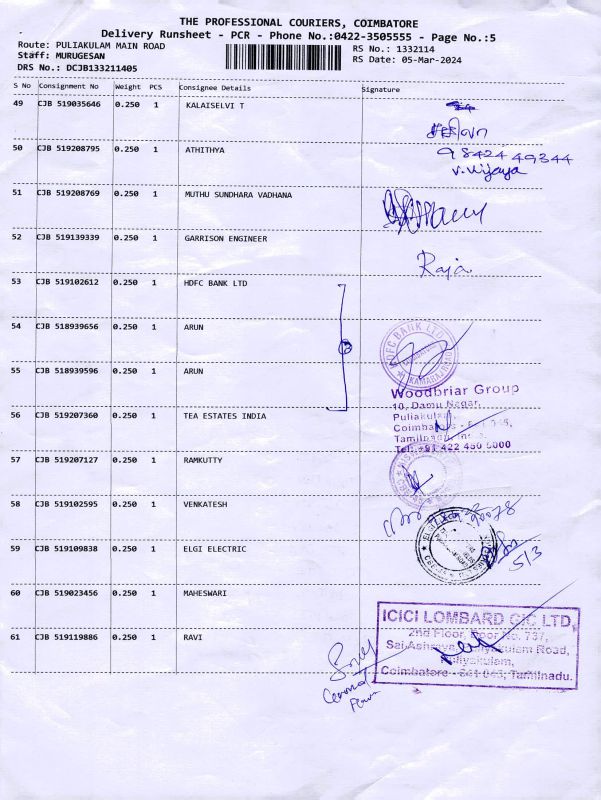 THE PROFESSIONAL COURIERS, COIMBATORE
Delivery Runsheet - PCR - Phone No.:0422-3505555 - Page No.:5
Route: PULIAKULAM MAIN ROAD
RS No.: 1332114
Staff: MURUGESAN
RS Date: 05-Mar-2024
DRS No.: DCJB133211405
S No Consignment No Weight PCS Consignee Details Signature
49 CJB 519035646 0.250 1 KALAISELVI T
50 CJB 519208795 0.250 1 ATHITHYA
98424 49344
V. Vijaya
51 CJB 519208769 0.250 1 MUTHU SUNDHARA VADHANA
52 CJB 519139339 0.250 1 GARRISON ENGINEER
Raja
53 CJB 519102612 0.250 1 HDFC BANK LTD
54 CJB 518939656 0.250 1 ARUN
HDFC BANK LTD
55 CJB 518939596 0.250 1 ARUN
Woodbriar Group
10, Damu Nagar,
Puliakulam,
56 CJB 519207360 0.250 1 TEA ESTATES INDIA
57 CJB 519207127 0.250 1 RAMKUTTY
58 CJB 519102595 0.250 1 VENKATESH
59 CJB 519109838 0.250 1 ELGI ELECTRIC
5/3
60 CJB 519023456 0.250 1 MAHESWARI
61 CJB 519119886 0.250 1 RAVI
ICICI LOMBARD GIC LTD,
2nd Floor, Door No. 737,
Puliyakulam Road,
Puliyakulam,
Coimbatore - 641 045, Tamilnadu.